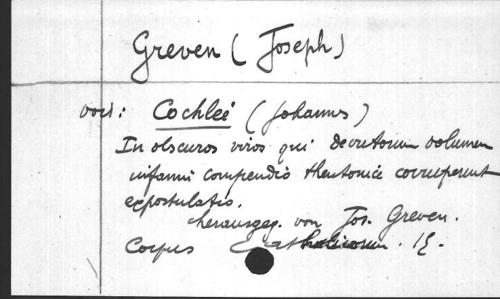 Greven (Joseph)
voir: Cochleé (Johannes)
In obscuros viros qui decretorum volumen
infami compendio theutonice corruperunt
expostulatio.
herausgeg. von Jos. Greven.
Corpus Catholicorum. 15.